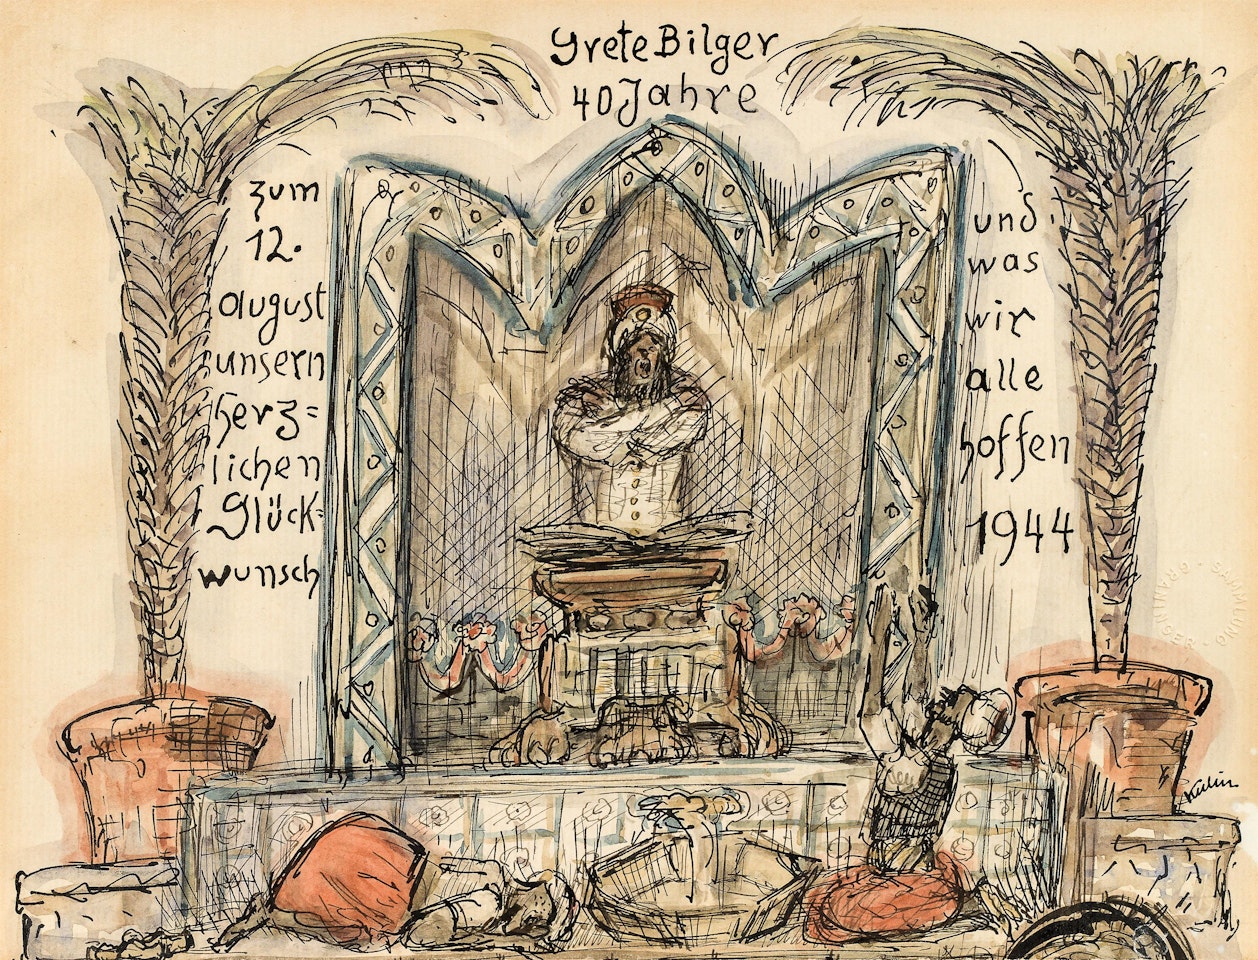 Grete Bilger
40 Jahre
zum
12.
august
unsern
herz=
lichen
Glück=
wunsch
und
was
wir
alle
hoffen
1944
Kubin